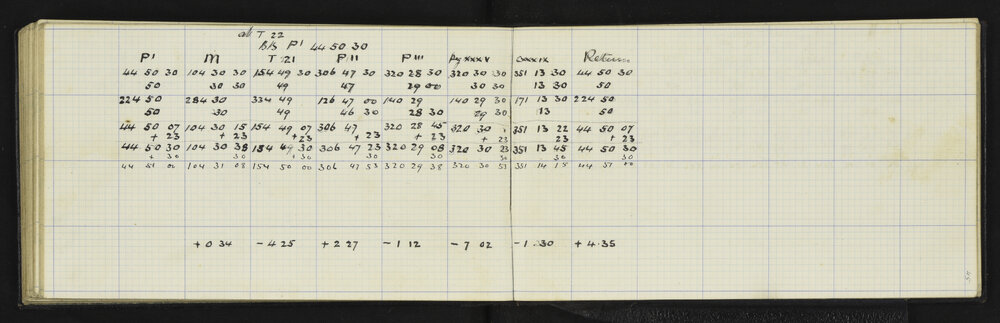 at T 22
B/S P' 44 50 30
P' M T 21 P 11 P 111 Pg XXXV XXXIX Return
44 50 30 104 30 30 154 49 30 306 47 30 320 28 30 320 30 30 351 13 30 44 50 30
50 30 30 49 47 29 00 30 30 13 30 50
224 50 284 30 334 49 126 47 00 140 29 140 29 30 171 13 30 224 50
50 30 49 46 30 28 30 29 30 13 50
44 50 07 104 30 15 154 49 07 306 47 320 28 45 320 30 351 13 22 44 50 07
+ 23 + 23 + 23 + 23 + 23 + 23 23 + 23
44 50 30 104 30 38 154 49 30 306 47 23 320 29 08 320 30 23 351 13 45 44 50 30
+ 30 30 + 30 30 30 30 30 30
44 51 00 104 31 08 154 50 00 306 47 53 320 29 38 320 30 53 351 14 15 44 51 00
+ 0 34 - 4 25 + 2 27 - 1 12 - 7 02 - 1 30 + 4.35